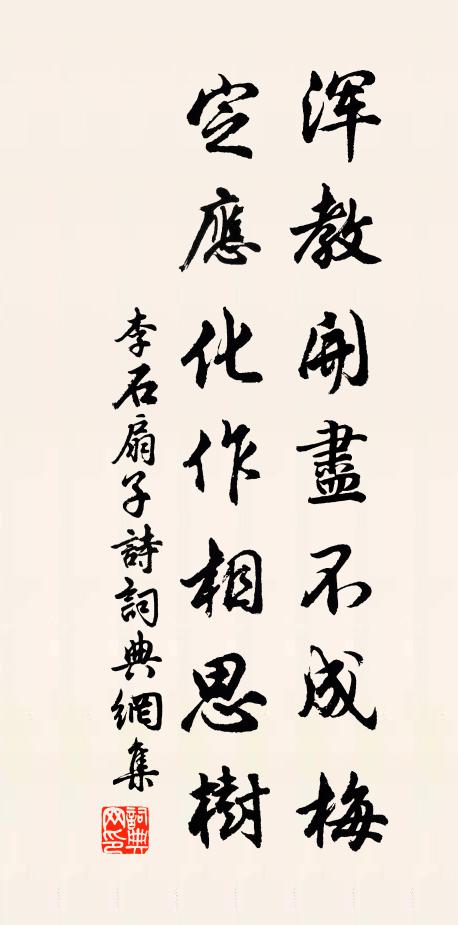 渾教開盡不成梅
定應化作相思樹
李石扇子詩詞典網集
詞典
網印